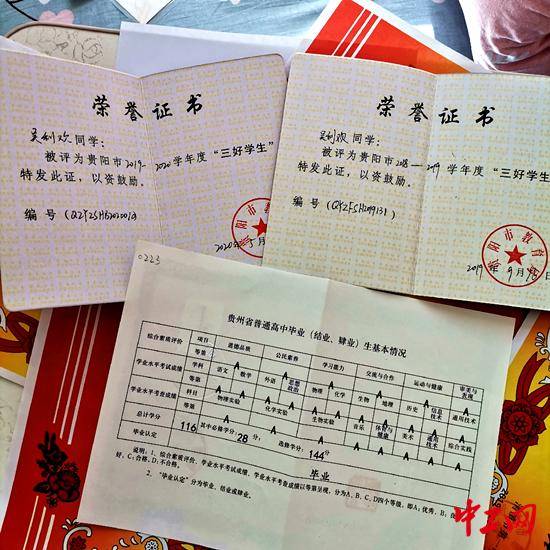 荣誉证书
吴创欢同学：
被评为贵阳市2019—
2020学年度“三好学生”
特发此证，以资鼓励。
编号
2020年5月
荣誉证书
吴创欢 同学：
被评为贵阳市2018—
2019学年度“三好学生
特发此证，以资鼓励。
编号
贵阳市教育局
2019年9月
0223
贵州省普通高中毕业（结业、肄业）生基本情况
综合素质评价 项目 道德品质 公民素养 学习能力 交流与合作 运动与健康 审美与表现
等第 A A A A A A
学业水平考试成绩 学科 语文 数学 外语 思想政治 物理 化学 生物 地理 历史 信息技术 通用技术
等第 A A A A A A A A A A
学业水平考查成绩 科目 物理实验 化学实验 生物实验 音乐 体育与健康 美术 通用技术 综合实践
等第 A A A A A A A A
总计学分 116 其中必修学分： 28 分； 选修学分： 144 分
毕业认定 毕业
说明：1、综合素质评价、学业水平考试成绩、学业水平考查成绩以等第呈现，分为A、B、C、D四个等级，即A：优秀，B：良
好，C：合格，D：不合格。
2、“毕业认定”分为毕业、结业或肄业。
2019
中工网